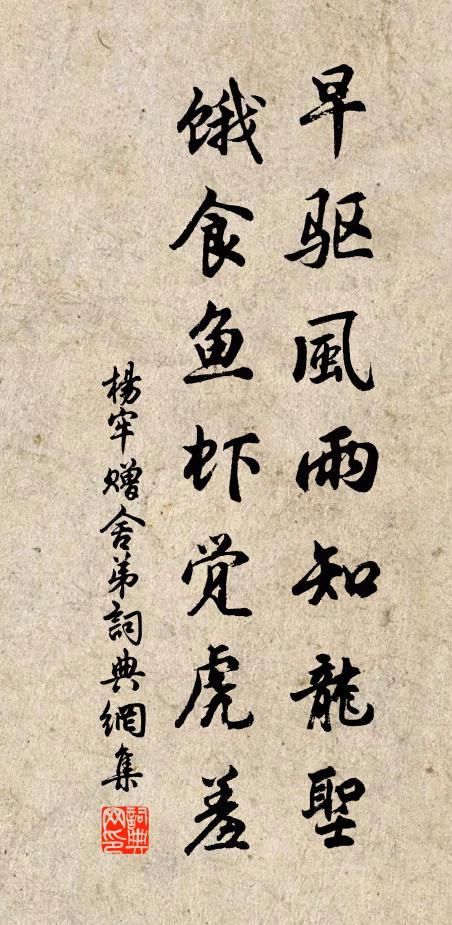 早驱風雨知龍聖
饿食鱼虾觉虎羞
楊牢赠舍弟詞典網集
詞典网印